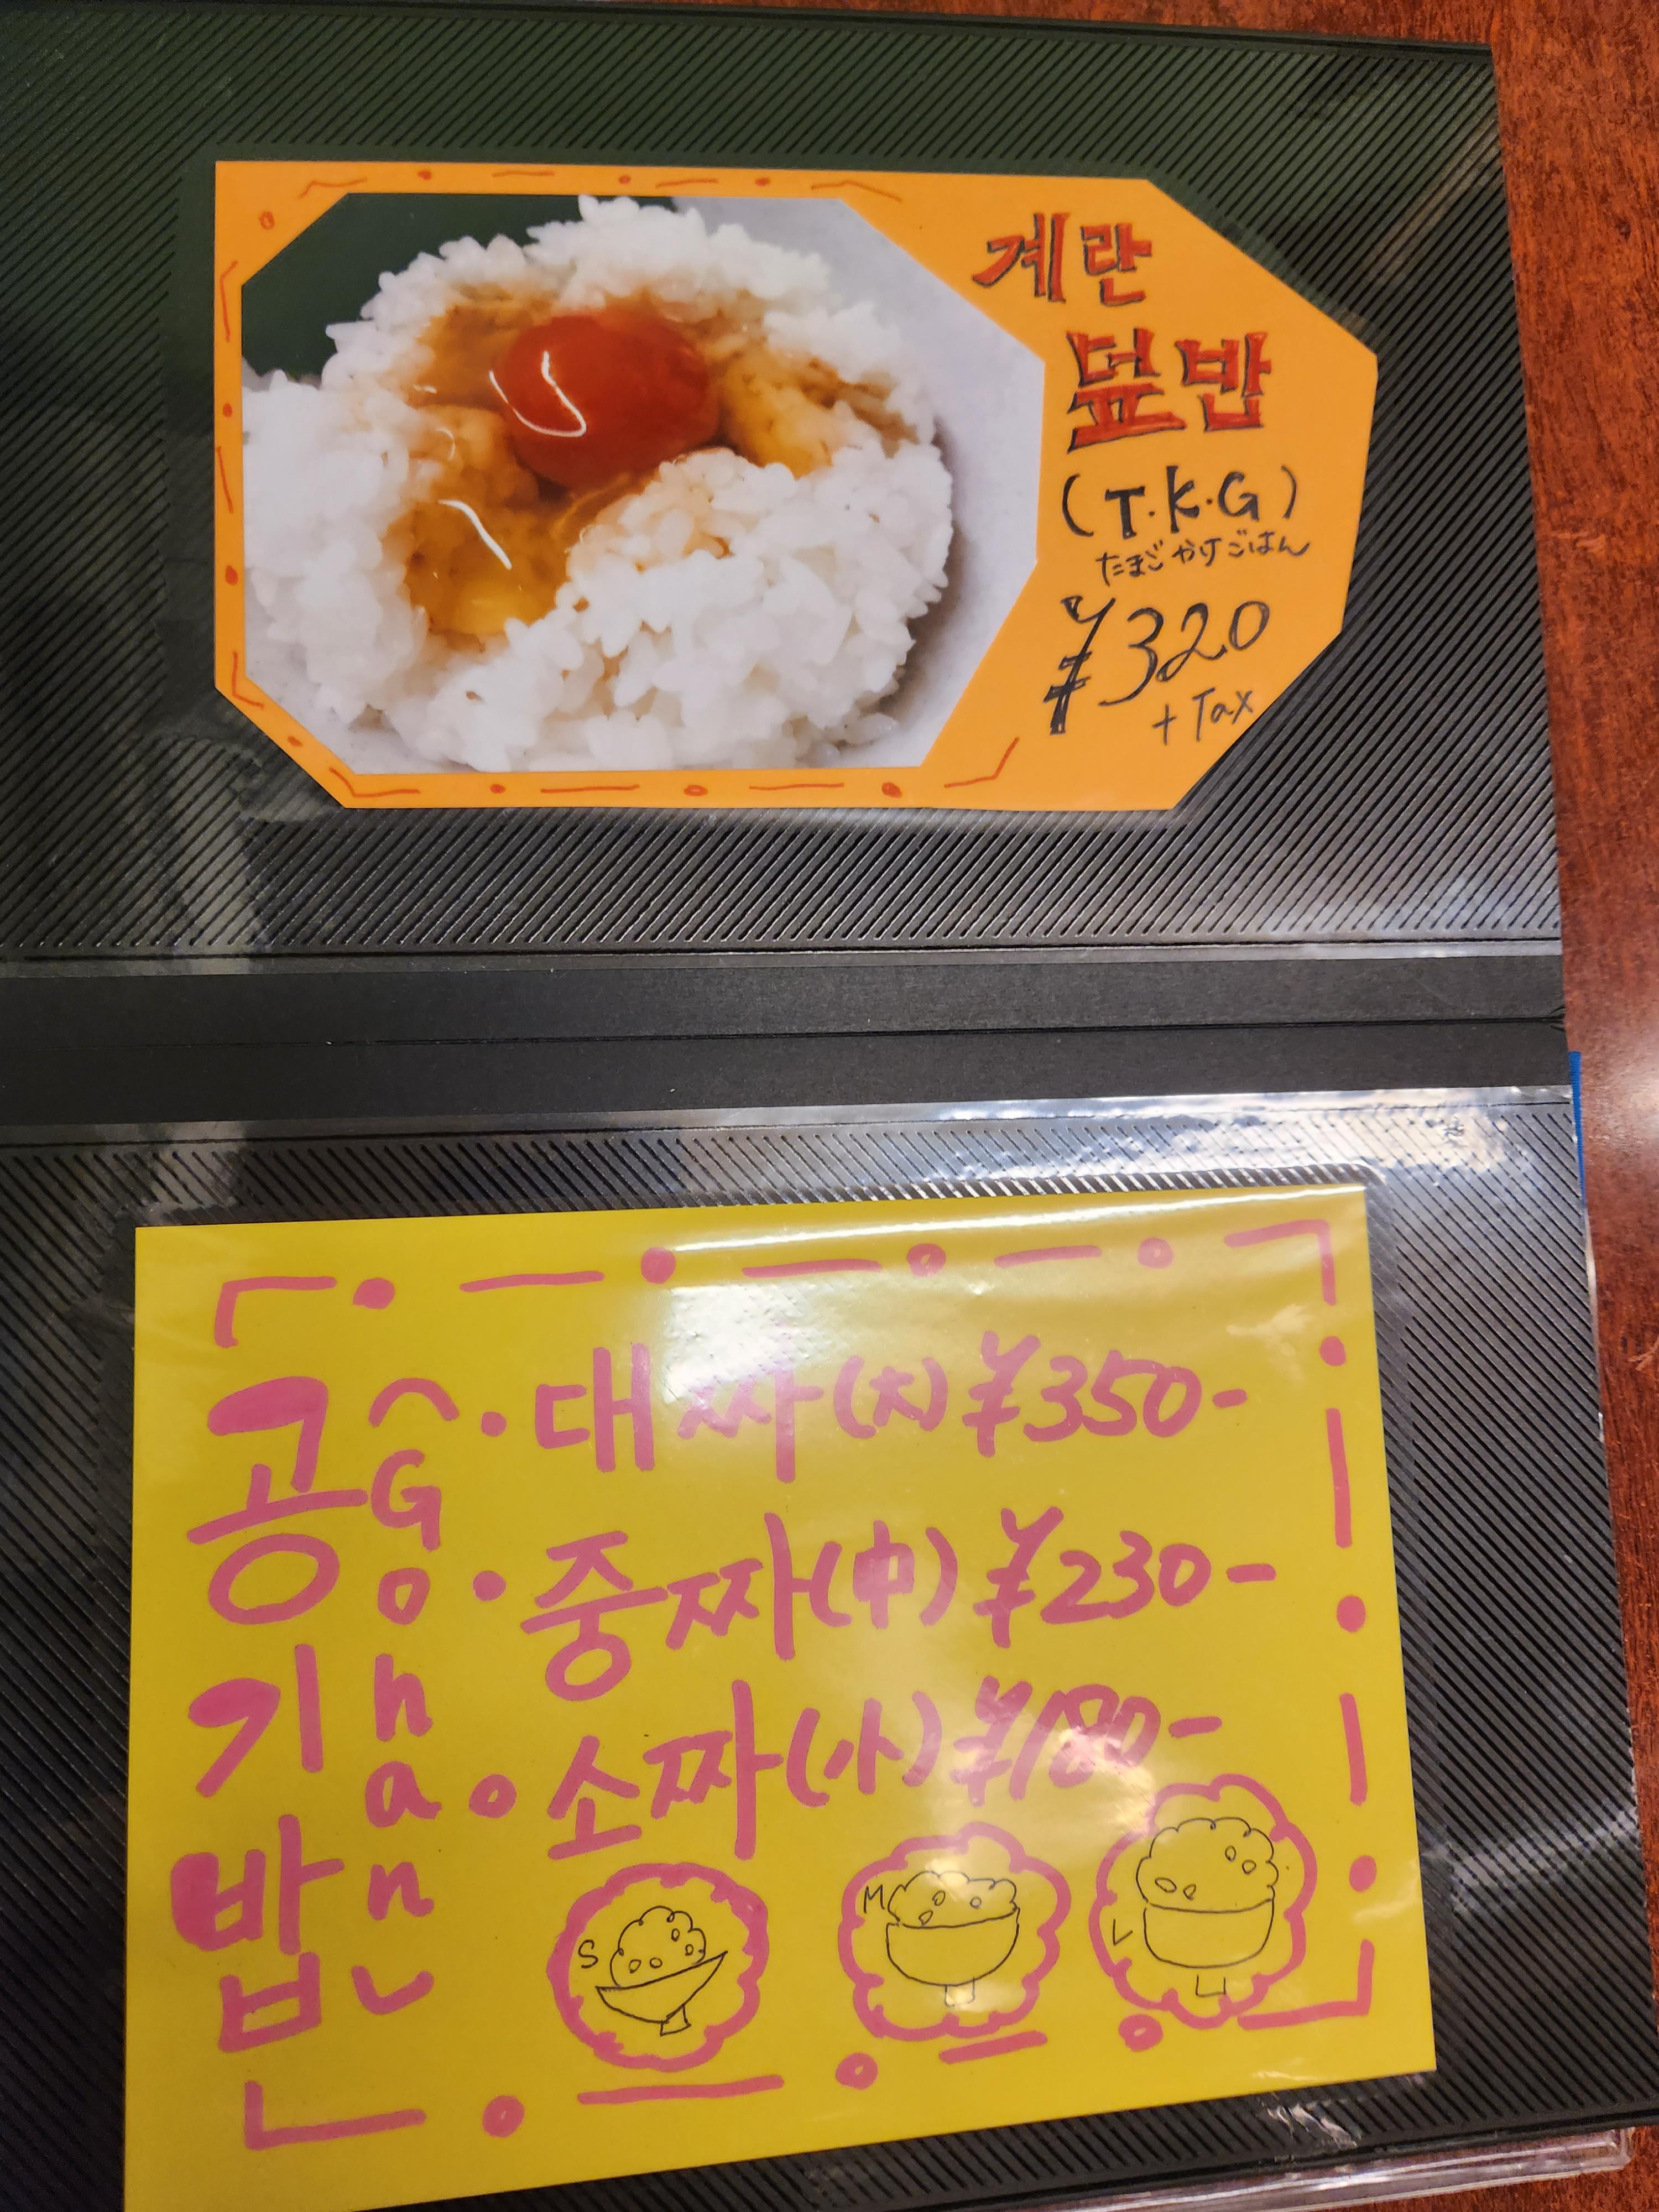 계란
덮밥
(T.K.G)
たまごかけごはん
¥320
+ Tax
공기밥
(Gohan)
・대짜(大)¥350-
・중짜(中)¥230-
・소짜(小)¥180-
S
M
L